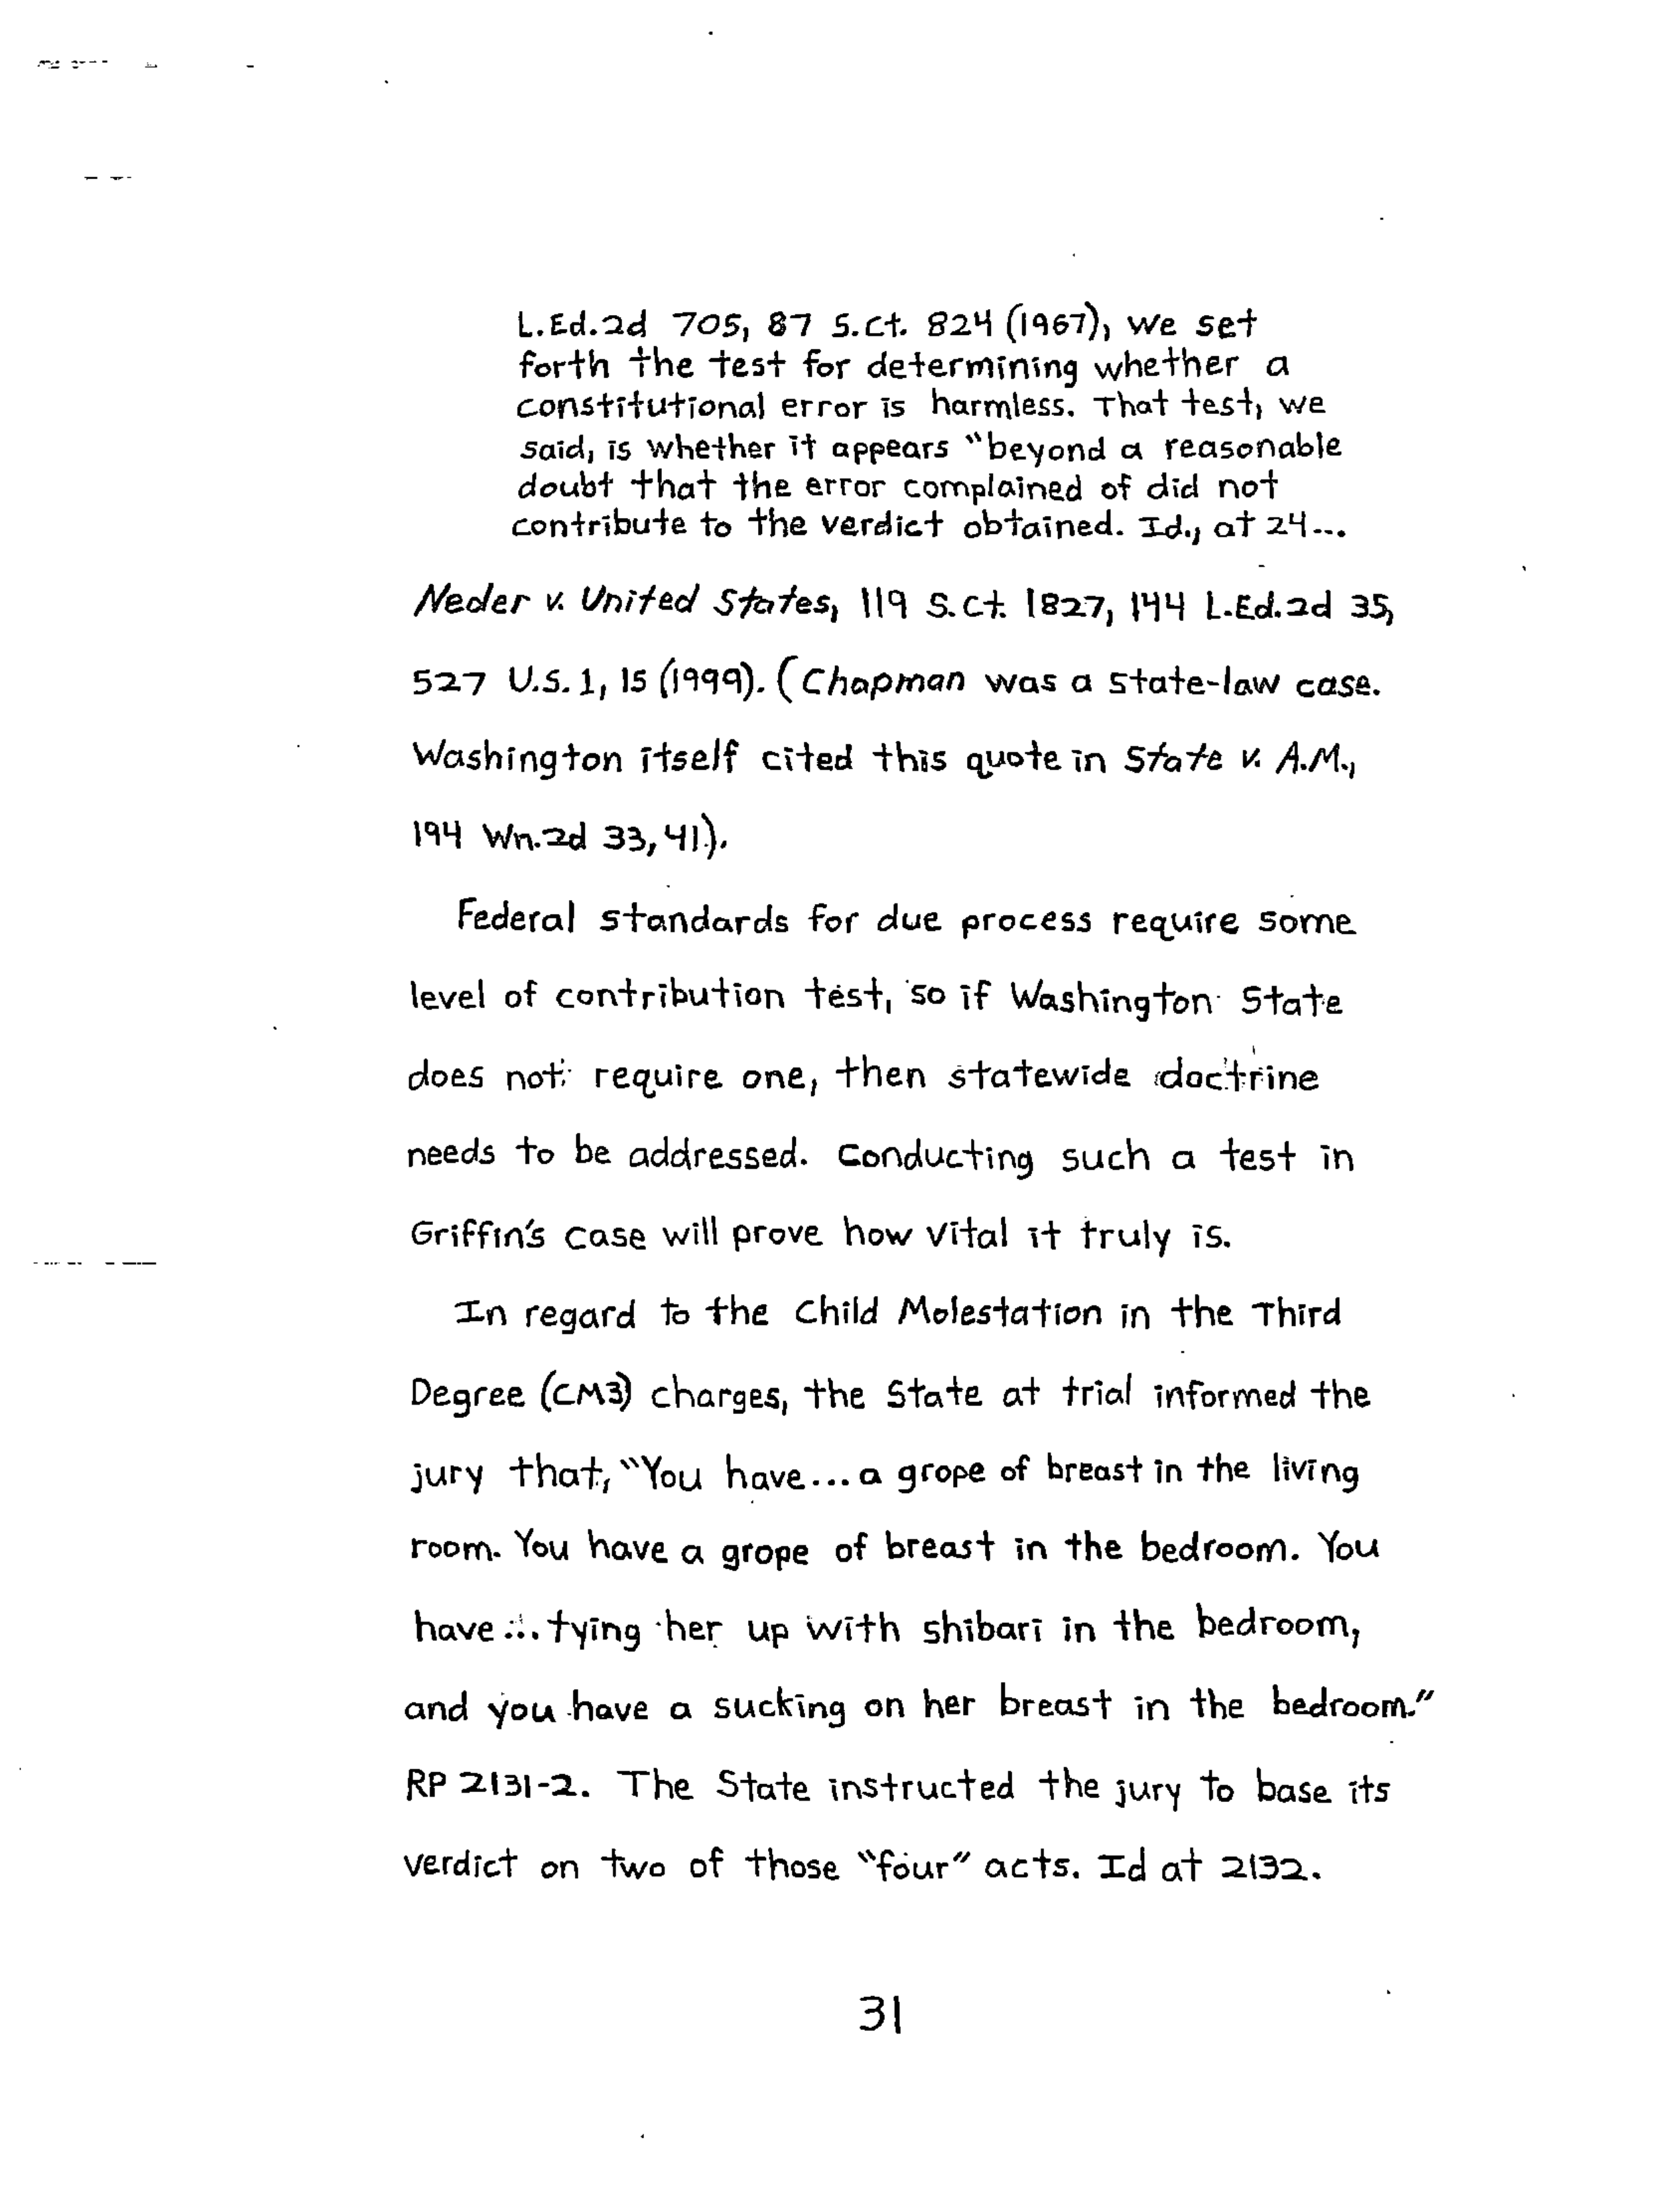 L.Ed.2d 705, 87 S.Ct. 824 (1967), we set
forth the test for determining whether a
constitutional error is harmless. That test, we
said, is whether it appears "beyond a reasonable
doubt that the error complained of did not
contribute to the verdict obtained. Id., at 24...
Neder v. United States, 119 S.Ct. 1827, 144 L.Ed.2d 35,
527 U.S. 1, 15 (1999). (Chapman was a state-law case.
Washington itself cited this quote in State v. A.M.,
194 Wn.2d 33, 41).
Federal standards for due process require some
level of contribution test, so if Washington State
does not require one, then statewide doctrine
needs to be addressed. Conducting such a test in
Griffin's case will prove how vital it truly is.
In regard to the Child Molestation in the Third
Degree (CM3) charges, the State at trial informed the
jury that, "You have... a grope of breast in the living
room. You have a grope of breast in the bedroom. You
have... tying her up with shibari in the bedroom,
and you have a sucking on her breast in the bedroom."
RP 2131-2. The State instructed the jury to base its
verdict on two of those "four" acts. Id at 2132.
31